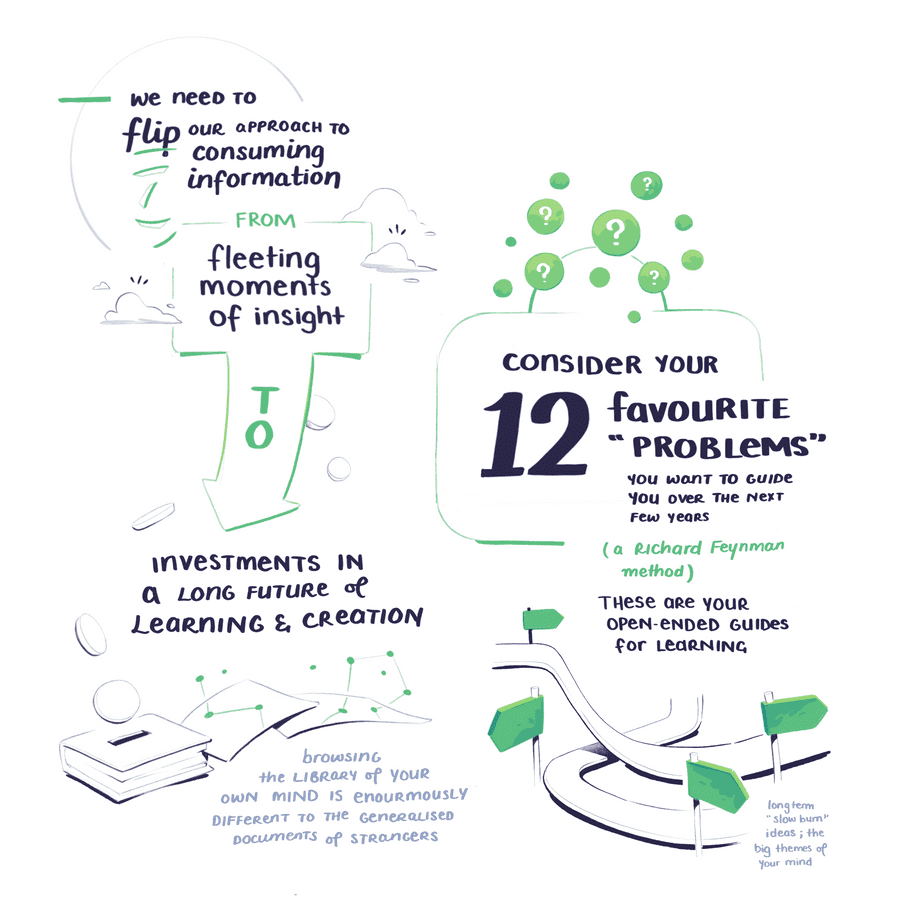 we need to
flip our approach to
consuming
information
FROM
fleeting
moments
of insight
TO
investments in
a long future of
learning & creation
browsing
the library of your
own mind is enourmously
different to the generalised
documents of strangers
? ? ? ? ?
consider your
12 favourite
"problems"
you want to guide
you over the next
few years
(a Richard Feynman
method)
These are your
open-ended guides
for learning
long term
"slow burn"
ideas; the
big themes of
your mind